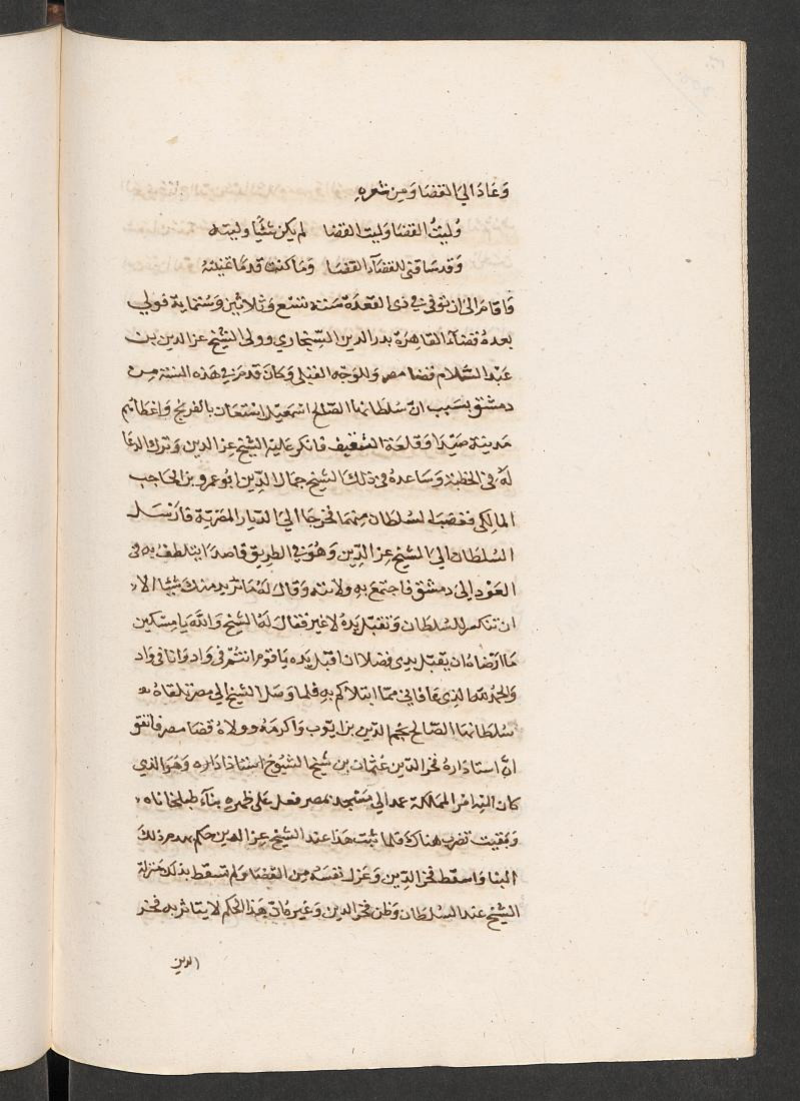 وَعَادَ اليَ القضا وَمِن شعره
وُليتُ القضا وَليت القضا لم يكن شيًا وليته
وَقد ساقني للقضآء القضا وَمَا كنت قدمًا تمنيته
فاقامَ الى ان توفي في ذى القعدة سَنة تسْع وَثلاثين وَستماية فولي
بعدهُ قضآء القاهِرة بدر الدين السّنجاري وولى الشيخ عز الدين بن
عَبْد السَّلام قضا مصر وَللوَجْه القبلى وَكانَ قدمَ في هَذه السَنة من
دمشق بسَبب انّ سُلطانها الصَّالح اسمَعيل اسْتعَان بالفرنج وَاعْطَاهم
مَدينة صَيْدَا وَقلعَة الشقيف فانكر عَليْه الشيخ عز الدين وَترك الدعَا
لَهُ في الخطبَة وَسَاعدهُ في ذلك الشيخ جمال الدّين ابو عمرو بن الحَاجب
المالِكى فغضبَ السُلطان منهما فخرجَا اليَ الدّيار المصْريّة فارْسَل
السُلطان الى الشيخ عز الدّين وَهُوَ في الطريق قاصدًا يتلطف به فى
العَوْد الى دمشق فاجتمعَ به ولاينه وَقال لهُ مَا نريد منك شيْئا الا
ان تنكسر للسُلطان وَتقبّل يَدهُ لا غير فقال لهُ الشيخ وَاللّه يا مِسْكين
مَا ارضاهُ ان يقبّل يدى فضلا ان اقبّل يَده يَا قوم انتُم في وَاد وَانا في وَاد
وَالحمْد لله الذى عَافاني ممّا ابتلاكم به فلما وَصَل الشيخ الى مصر تلقاهُ
سُلطانها الصَّالح نجم الدّين بن ايّوب وَاكرمَهُ وولاهُ قضا مصر فاتفق
انّ استادَارهُ فخر الدّين عثمان بن شيخ الشيُوخ استاذ دَاره وَهُوَ الذي
كان اليْه امْر المملكة عمد الى مَسْجد بمصر فعمل عَلى ظهره بنآء طبلخاناه
وَبقيت تضرب هناك فلما ثبت هَذا عند الشيخ عز الدين حكم بهدم ذلك
البنا وَاسقط فخر الدّين وَعزل نفسَهُ مِن القضَا وَلم تسقط بذلك مَنزلة
الشيخ عند السُلطان وَظن فخر الدين وَغيره ان هَذا الحكم لا يتاثر به فخر
الدين